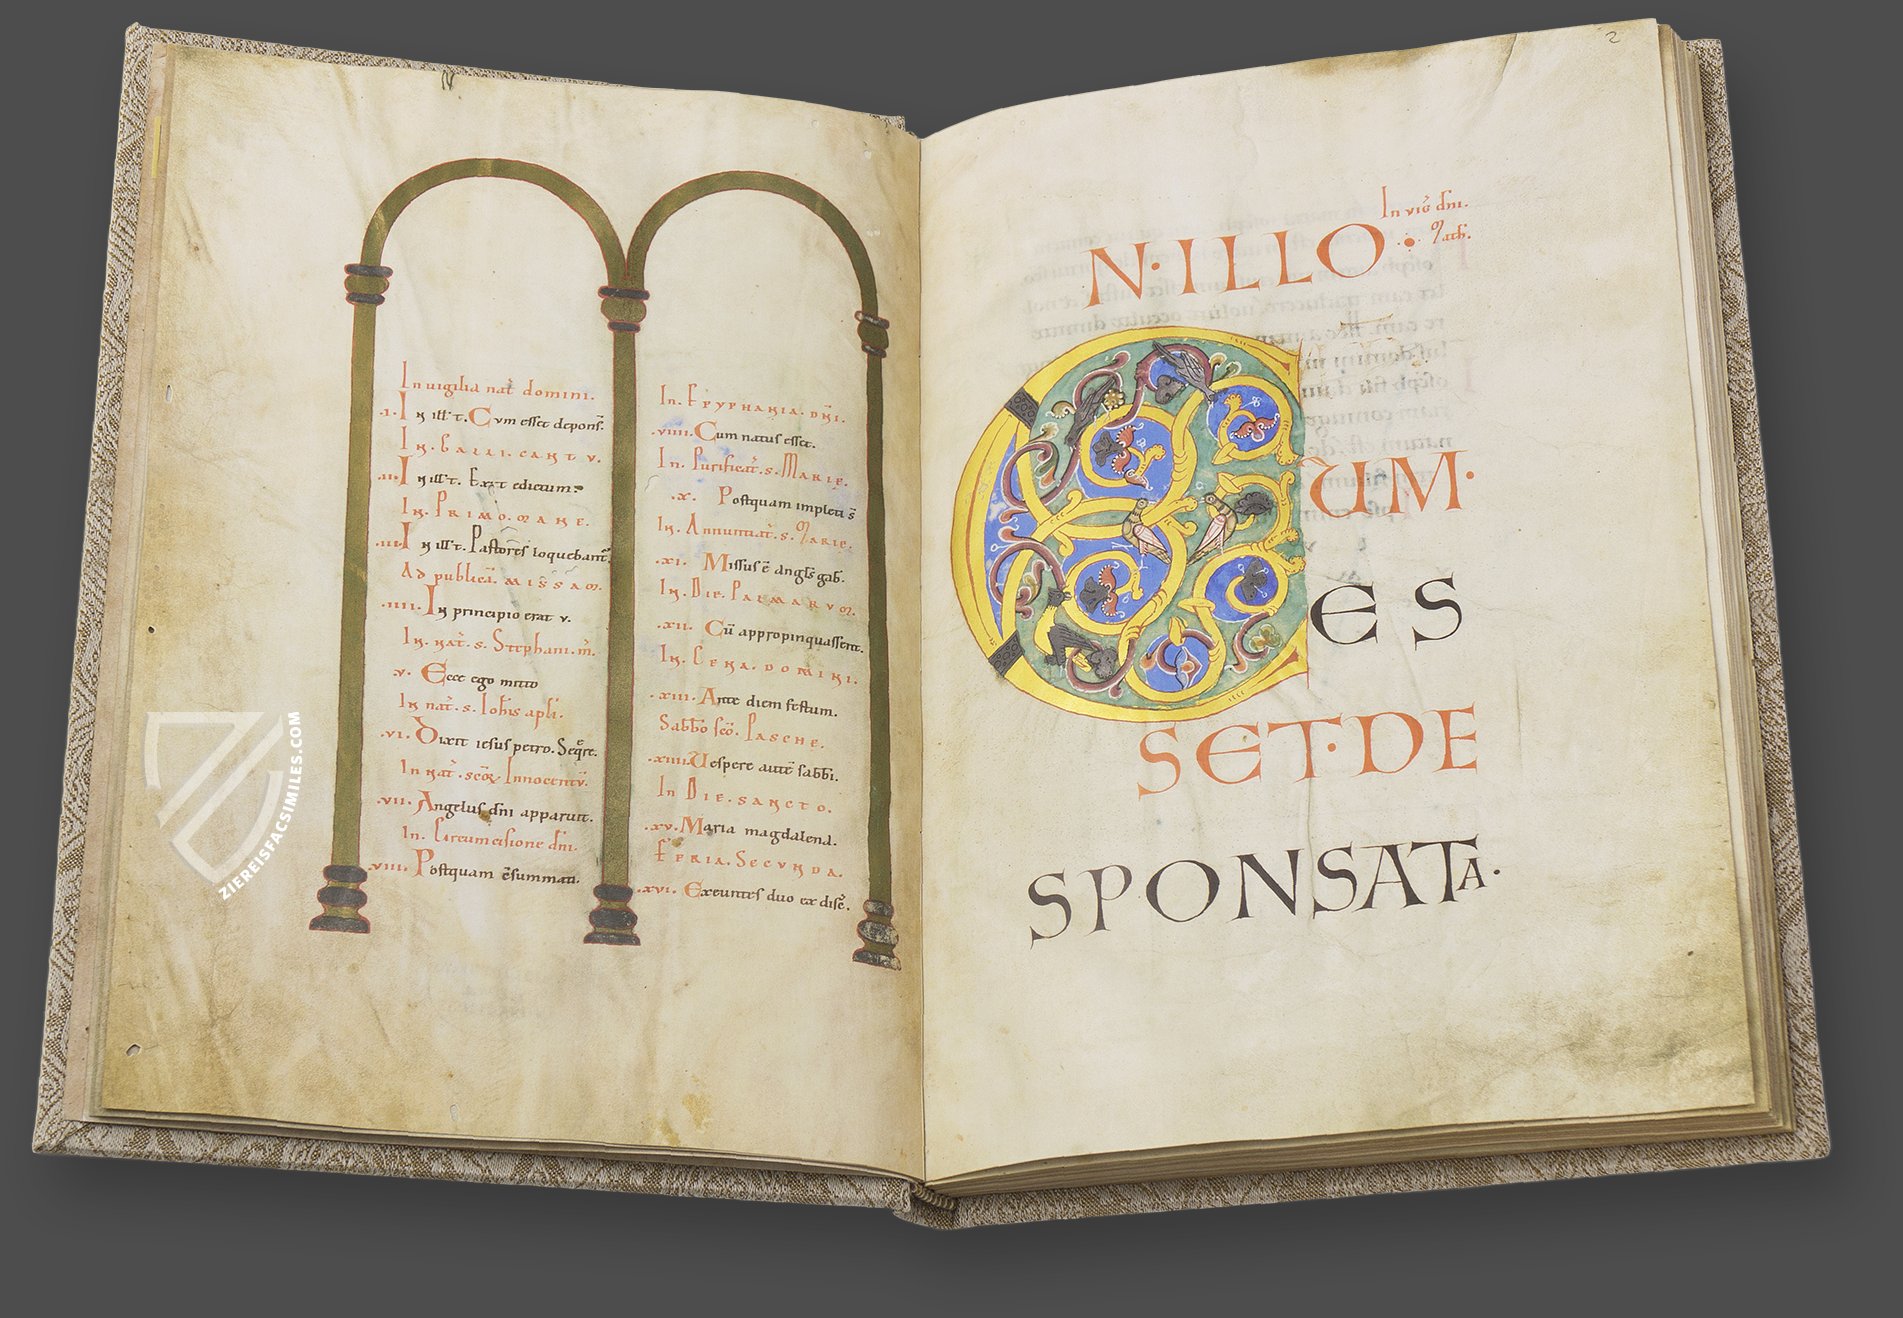 In uigilia nat̄ domini.
.I. In ill̄ t̄. Cum esset despons̄.
In. galli. cantu.
.II. In ill̄ t̄. Exiit edictum.
In. Primo. mane.
.III. In ill̄ t̄. Pastores loquebant̄
Ad publicā. missam.
.IIII. In principio erat v.
In. nat̄. s. Stephani. m̄.
.V. Ecce ego mitto
In nat̄. s. Iohis apl̄i.
.VI. Dixit iesus petro. Seq̄re.
In nat̄. sc̄oꝝ Innocentū.
.VII. Angelus dn̄i apparuit.
In. Circumcisione dn̄i.
.VIII. Postquam c̄summati.
In. Epyphania. dn̄i.
.VIIII. Cum natus esset.
In. Purificat̄. s. Marie.
.X. Postquam impleti s̄
In. Annuntiat̄. s. Marie.
.XI. Missus ē angl̄s gab̄.
In. Die. Palmarum.
.XII. Cū appropinquassent.
In. Cena. domini.
.XIII. Ante diem festum.
Sabb̄o sc̄o. Pasche.
.XIIII. Uespere autē sabbi.
In Die. sancto.
.XV. Maria magdalena.
Feria. Secunda.
.XVI. Exeuntes duo ex disc̄.
ZIEREISFACSIMILES.COM
2
In viḡ dn̄i.
Math̄.
N·ILLO·
CUM·
ES
SET·DE
SPONSATA·